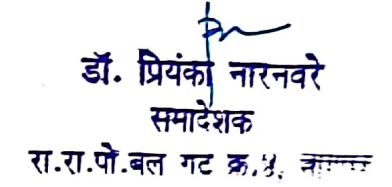 डॉ. प्रियंका नारनवरे
समादेशक
रा.रा.पो.बल गट क्र.४,